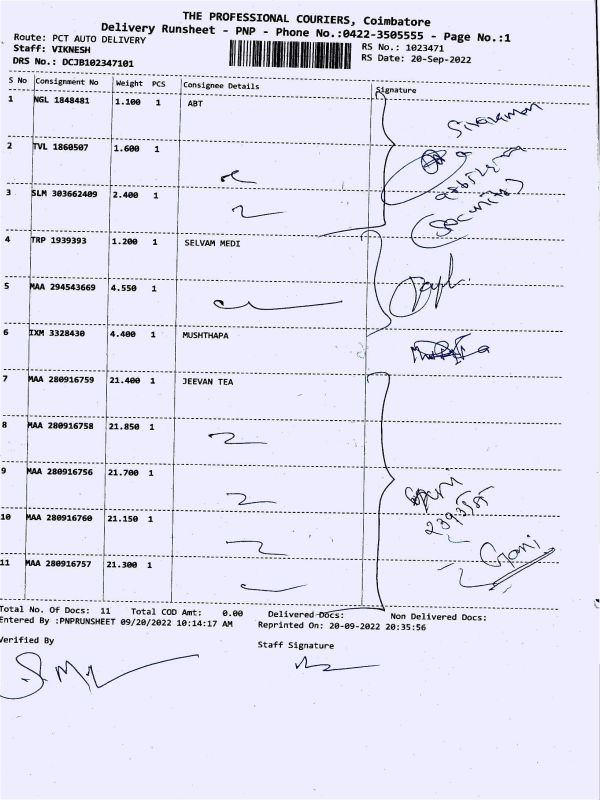 THE PROFESSIONAL COURIERS, Coimbatore
Delivery Runsheet - PNP - Phone No.:0422-3505555 - Page No.:1
Route: PCT AUTO DELIVERY
RS No.: 1023471
Staff: VIKNESH
RS Date: 20-Sep-2022
DRS No.: DCJB102347101
S No Consignment No Weight PCS Consignee Details Signature
1 NGL 1848481 1.100 1 ABT
Sivaraman
2 TVL 1860507 1.600 1
3 SLM 303662409 2.400 1
(Security)
4 TRP 1939393 1.200 1 SELVAM MEDI
5 MAA 294543669 4.550 1
6 IXM 3328430 4.400 1 MUSHTHAPA
7 MAA 280916759 21.400 1 JEEVAN TEA
8 MAA 280916758 21.850 1
9 MAA 280916756 21.700 1
10 MAA 280916760 21.150 1
Gani
11 MAA 280916757 21.300 1
Total No. Of Docs: 11 Total COD Amt: 0.00 Delivered Docs: Non Delivered Docs:
Entered By :PNPRUNSHEET 09/20/2022 10:14:17 AM Reprinted On: 20-09-2022 20:35:56
Verified By
Staff Signature